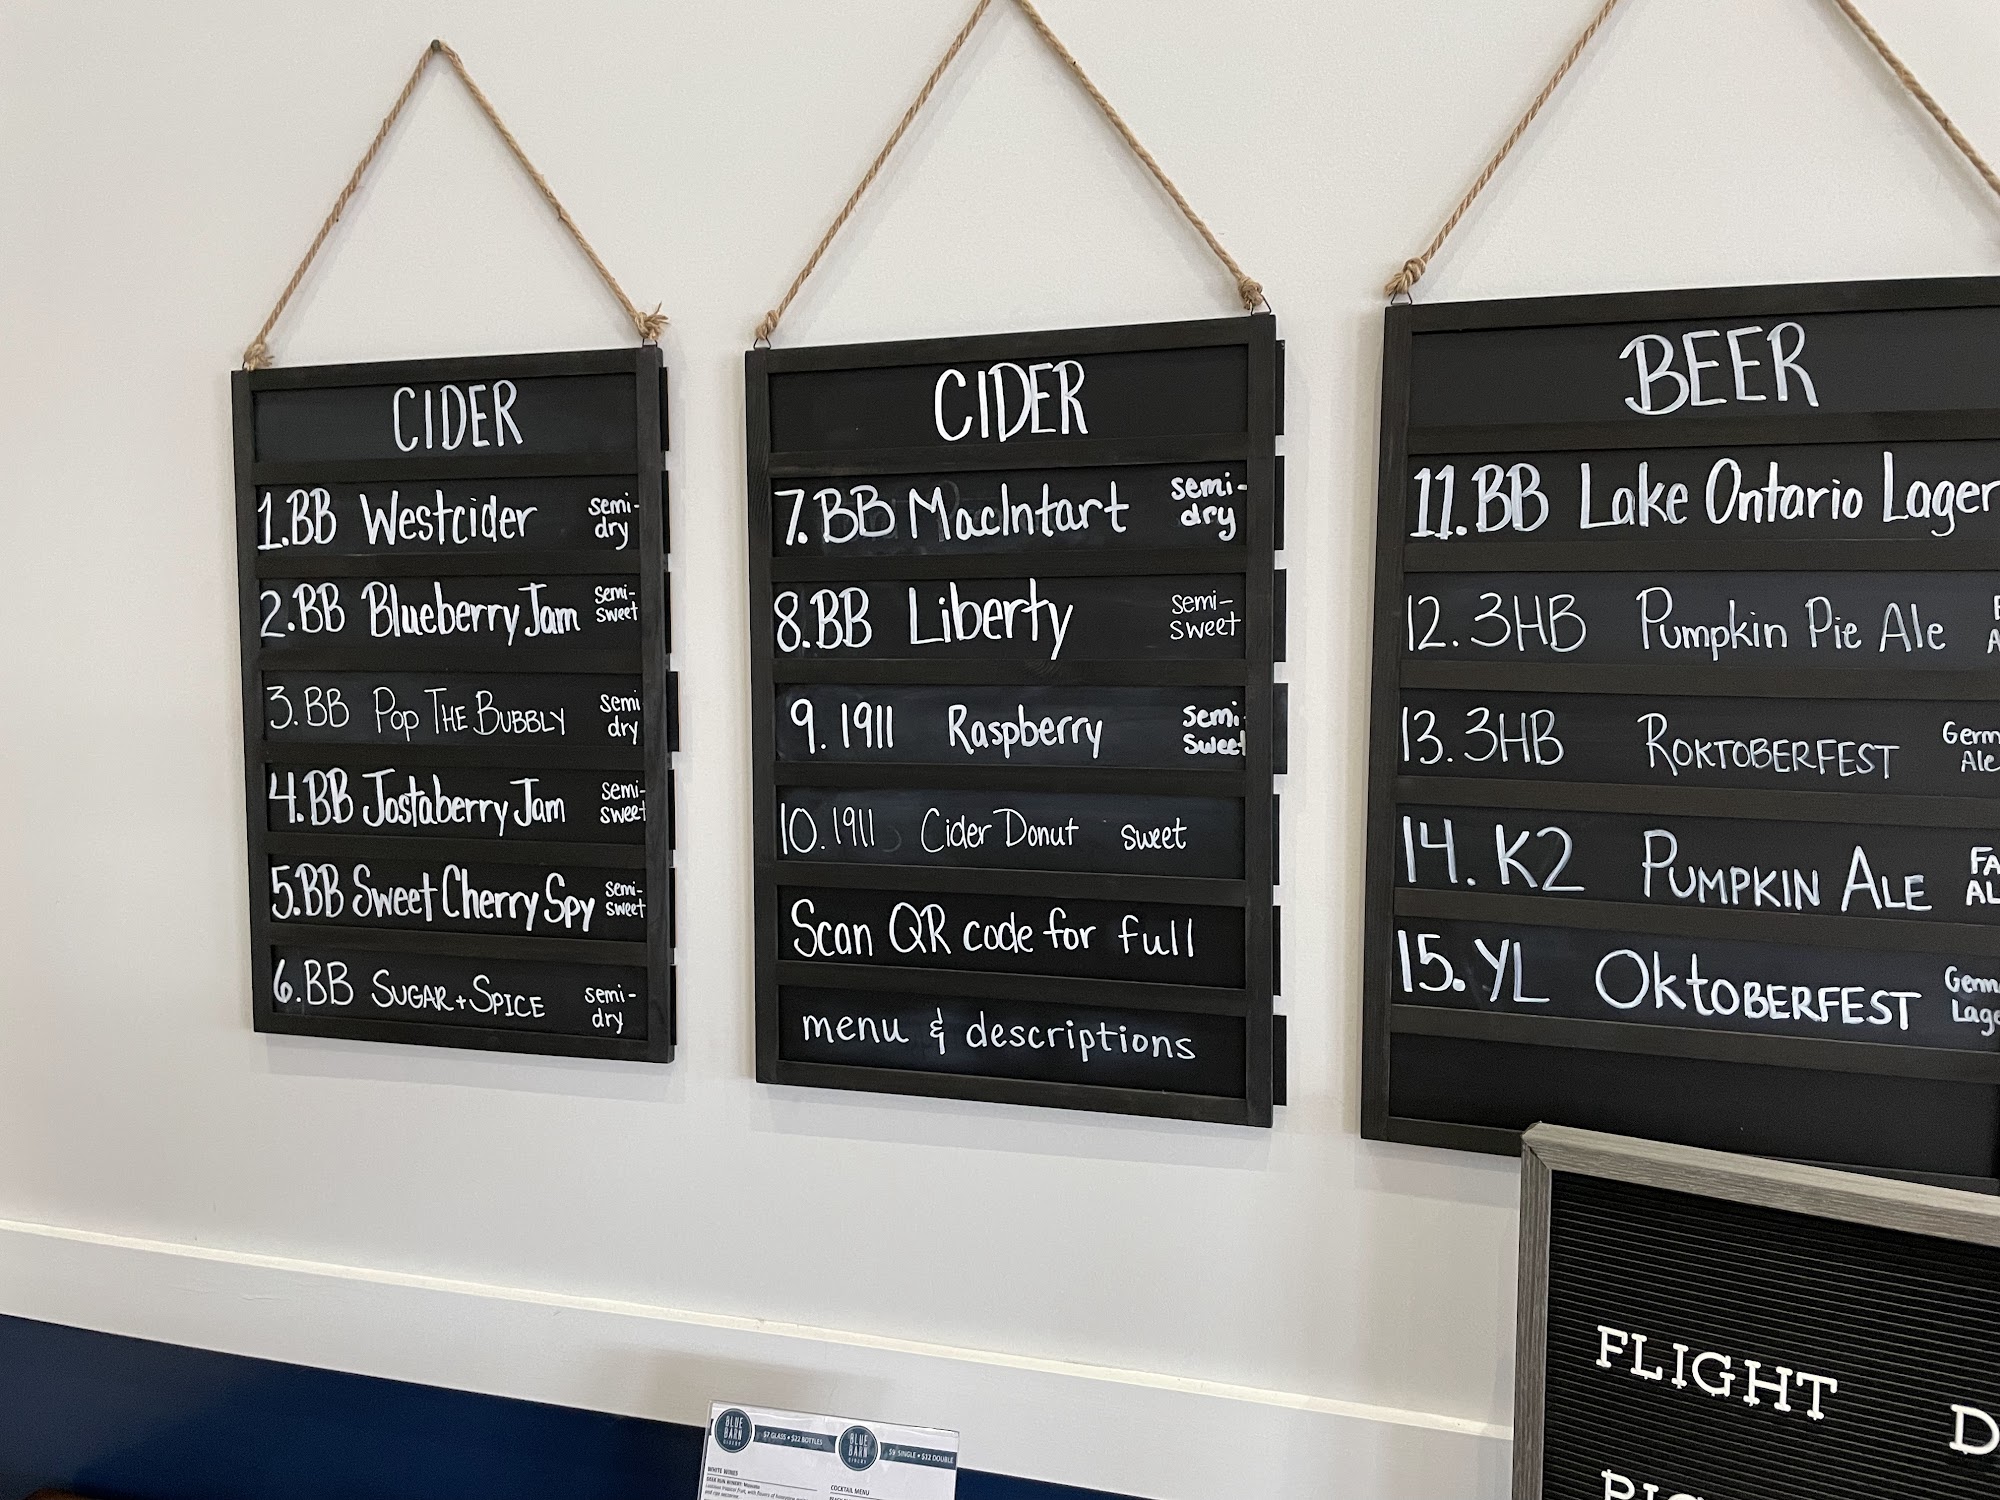 CIDER
1. BB Westcider semi-dry
2. BB Blueberry Jam semi-sweet
3. BB POP THE BUBBLY semi dry
4. BB Jostaberry Jam semi-sweet
5. BB Sweet Cherry Spy semi-sweet
6. BB SUGAR + SPICE semi-dry
CIDER
7. BB MacIntart semi-dry
8. BB Liberty semi-sweet
9. 1911 Raspberry semi-sweet
10. 1911 Cider Donut sweet
Scan QR code for full
menu & descriptions
BEER
11. BB Lake Ontario Lager
12. 3HB Pumpkin Pie Ale
13. 3HB ROKTOBERFEST Germ Ale
14. K2 PUMPKIN ALE FA AL
15. YL OKTOBERFEST Germ Lage
FLIGHT
D
BLUE BARN CIDERY
$7 GLASS • $22 BOTTLES
BLUE BARN CIDERY
$9 SINGLE • $12 DOUBLE
WHITE WINES
COCKTAIL MENU